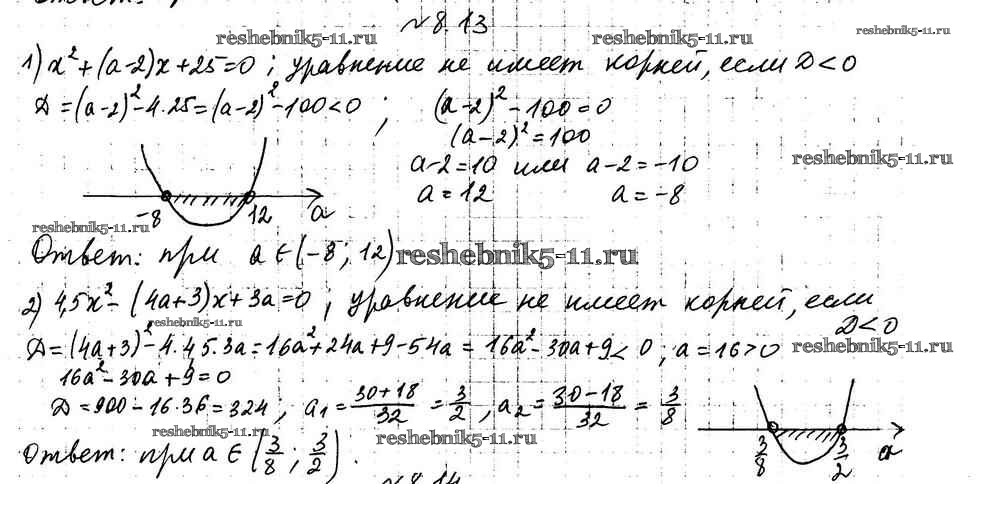 №8.13
reshebnik5-11.ru reshebnik5-11.ru reshebnik5-11.ru
1) x²+(a-2)x+25=0; уравнение не имеет корней, если D<0
D=(a-2)²-4·25=(a-2)²-100<0; (a-2)²-100=0
(a-2)²=100
reshebnik5-11.ru
a-2=10 или a-2=-10
a=12 a=-8
-8 12 a
reshebnik5-11.ru
Ответ: при a∈(-8; 12)
reshebnik5-11.ru
2) 4,5x²-(4a+3)x+3a=0; уравнение не имеет корней, если
D<0
reshebnik5-11.ru
D=(4a+3)²-4·4,5·3a=16a²+24a+9-54a=16a²-30a+9<0; a=16>0
reshebnik5-11.ru
16a²-30a+9=0
D=900-16·36=324; a₁=(30+18)/32=3/2, a₂=(30-18)/32=3/8
reshebnik5-11.ru reshebnik5-11.ru
3/8 3/2 a
Ответ: при a∈(3/8; 3/2).